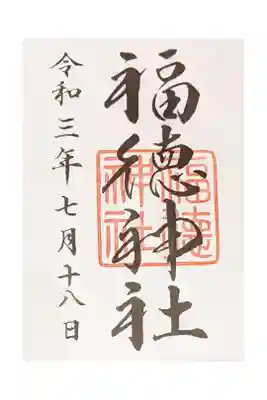 福徳神社
福徳神社
令和三年七月十八日